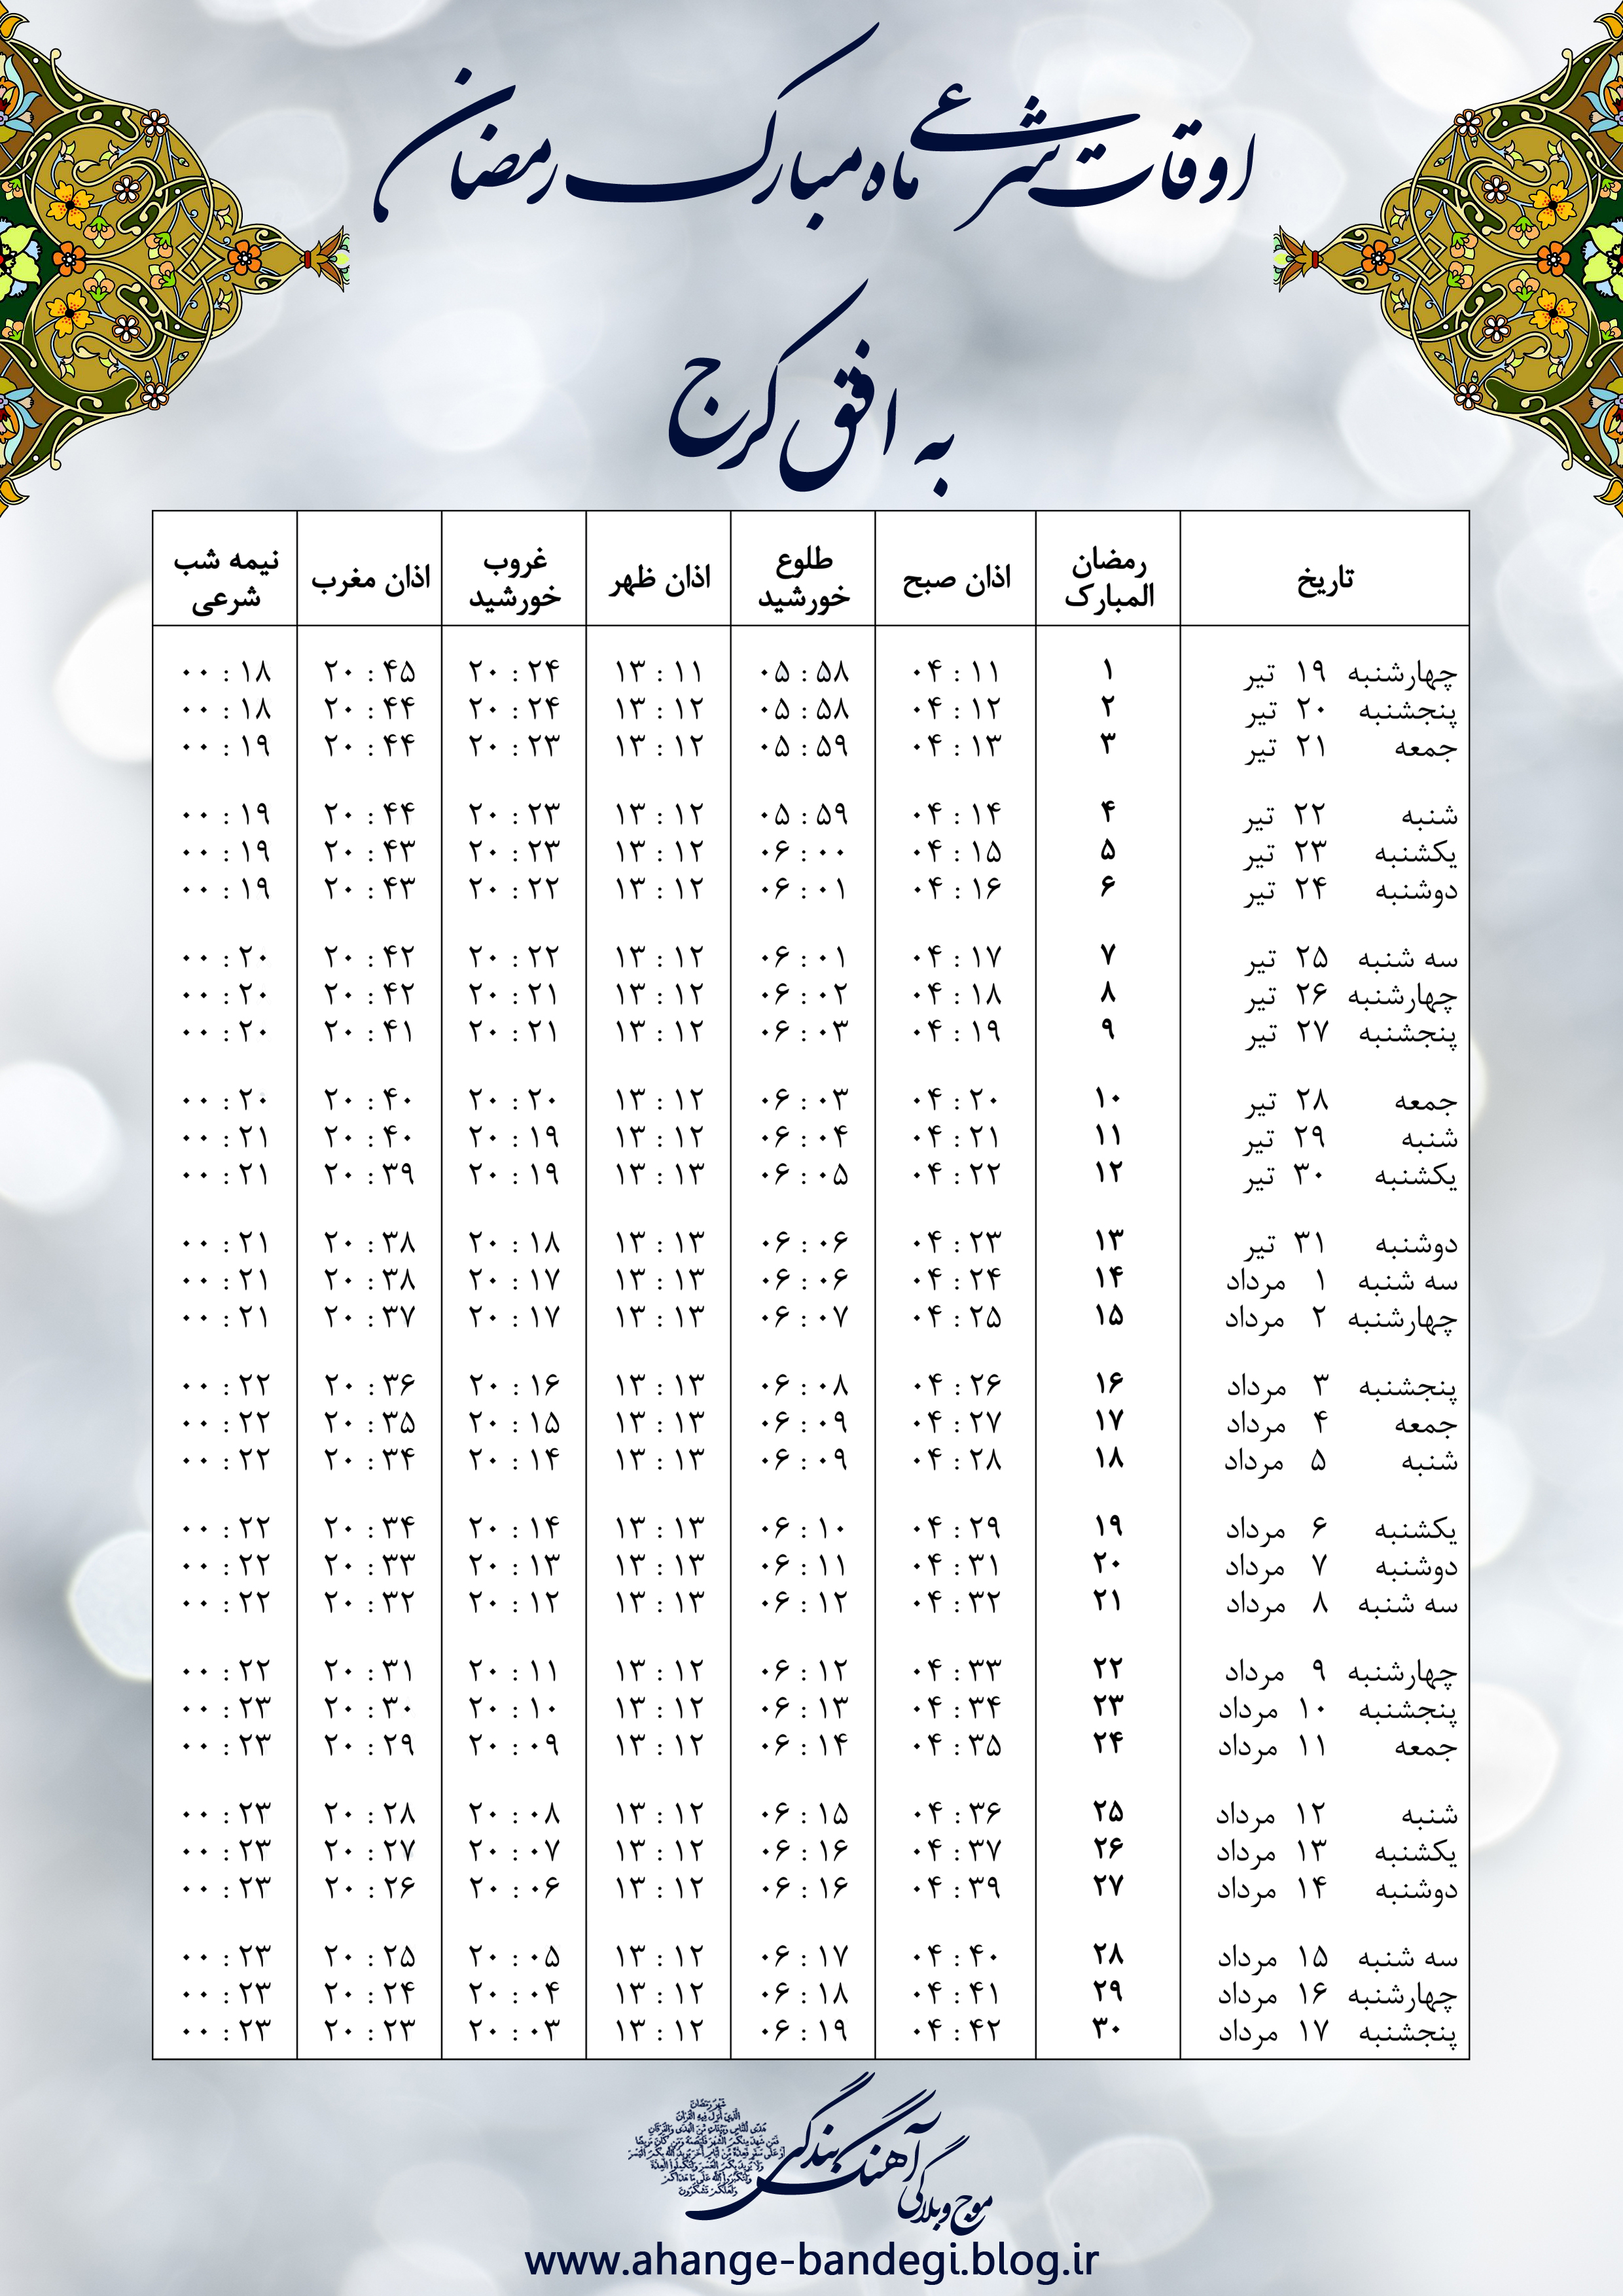 اوقات شرعی ماه مبارک رمضان
به افق کرج
تاریخ رمضان المبارک اذان صبح طلوع خورشید اذان ظهر غروب خورشید اذان مغرب نیمه شب شرعی
چهارشنبه ۱۹ تیر ۱ ۰۴:۱۱ ۰۵:۵۸ ۱۳:۱۱ ۲۰:۲۴ ۲۰:۴۵ ۰۰:۱۸
پنجشنبه ۲۰ تیر ۲ ۰۴:۱۲ ۰۵:۵۸ ۱۳:۱۲ ۲۰:۲۴ ۲۰:۴۴ ۰۰:۱۸
جمعه ۲۱ تیر ۳ ۰۴:۱۳ ۰۵:۵۹ ۱۳:۱۲ ۲۰:۲۳ ۲۰:۴۴ ۰۰:۱۹
شنبه ۲۲ تیر ۴ ۰۴:۱۴ ۰۵:۵۹ ۱۳:۱۲ ۲۰:۲۳ ۲۰:۴۴ ۰۰:۱۹
یکشنبه ۲۳ تیر ۵ ۰۴:۱۵ ۰۶:۰۰ ۱۳:۱۲ ۲۰:۲۳ ۲۰:۴۳ ۰۰:۱۹
دوشنبه ۲۴ تیر ۶ ۰۴:۱۶ ۰۶:۰۱ ۱۳:۱۲ ۲۰:۲۲ ۲۰:۴۳ ۰۰:۱۹
سه شنبه ۲۵ تیر ۷ ۰۴:۱۷ ۰۶:۰۱ ۱۳:۱۲ ۲۰:۲۲ ۲۰:۴۲ ۰۰:۲۰
چهارشنبه ۲۶ تیر ۸ ۰۴:۱۸ ۰۶:۰۲ ۱۳:۱۲ ۲۰:۲۱ ۲۰:۴۲ ۰۰:۲۰
پنجشنبه ۲۷ تیر ۹ ۰۴:۱۹ ۰۶:۰۳ ۱۳:۱۲ ۲۰:۲۱ ۲۰:۴۱ ۰۰:۲۰
جمعه ۲۸ تیر ۱۰ ۰۴:۲۰ ۰۶:۰۳ ۱۳:۱۲ ۲۰:۲۰ ۲۰:۴۰ ۰۰:۲۰
شنبه ۲۹ تیر ۱۱ ۰۴:۲۱ ۰۶:۰۴ ۱۳:۱۲ ۲۰:۱۹ ۲۰:۴۰ ۰۰:۲۱
یکشنبه ۳۰ تیر ۱۲ ۰۴:۲۲ ۰۶:۰۵ ۱۳:۱۳ ۲۰:۱۹ ۲۰:۳۹ ۰۰:۲۱
دوشنبه ۳۱ تیر ۱۳ ۰۴:۲۳ ۰۶:۰۶ ۱۳:۱۳ ۲۰:۱۸ ۲۰:۳۸ ۰۰:۲۱
سه شنبه ۱ مرداد ۱۴ ۰۴:۲۴ ۰۶:۰۶ ۱۳:۱۳ ۲۰:۱۷ ۲۰:۳۸ ۰۰:۲۱
چهارشنبه ۲ مرداد ۱۵ ۰۴:۲۵ ۰۶:۰۷ ۱۳:۱۳ ۲۰:۱۷ ۲۰:۳۷ ۰۰:۲۱
پنجشنبه ۳ مرداد ۱۶ ۰۴:۲۶ ۰۶:۰۸ ۱۳:۱۳ ۲۰:۱۶ ۲۰:۳۶ ۰۰:۲۲
جمعه ۴ مرداد ۱۷ ۰۴:۲۷ ۰۶:۰۹ ۱۳:۱۳ ۲۰:۱۵ ۲۰:۳۵ ۰۰:۲۲
شنبه ۵ مرداد ۱۸ ۰۴:۲۸ ۰۶:۰۹ ۱۳:۱۳ ۲۰:۱۴ ۲۰:۳۴ ۰۰:۲۲
یکشنبه ۶ مرداد ۱۹ ۰۴:۲۹ ۰۶:۱۰ ۱۳:۱۳ ۲۰:۱۴ ۲۰:۳۴ ۰۰:۲۲
دوشنبه ۷ مرداد ۲۰ ۰۴:۳۱ ۰۶:۱۱ ۱۳:۱۳ ۲۰:۱۳ ۲۰:۳۳ ۰۰:۲۲
سه شنبه ۸ مرداد ۲۱ ۰۴:۳۲ ۰۶:۱۲ ۱۳:۱۳ ۲۰:۱۲ ۲۰:۳۲ ۰۰:۲۲
چهارشنبه ۹ مرداد ۲۲ ۰۴:۳۳ ۰۶:۱۲ ۱۳:۱۲ ۲۰:۱۱ ۲۰:۳۱ ۰۰:۲۲
پنجشنبه ۱۰ مرداد ۲۳ ۰۴:۳۴ ۰۶:۱۳ ۱۳:۱۲ ۲۰:۱۰ ۲۰:۳۰ ۰۰:۲۳
جمعه ۱۱ مرداد ۲۴ ۰۴:۳۵ ۰۶:۱۴ ۱۳:۱۲ ۲۰:۰۹ ۲۰:۲۹ ۰۰:۲۳
شنبه ۱۲ مرداد ۲۵ ۰۴:۳۶ ۰۶:۱۵ ۱۳:۱۲ ۲۰:۰۸ ۲۰:۲۸ ۰۰:۲۳
یکشنبه ۱۳ مرداد ۲۶ ۰۴:۳۷ ۰۶:۱۶ ۱۳:۱۲ ۲۰:۰۷ ۲۰:۲۷ ۰۰:۲۳
دوشنبه ۱۴ مرداد ۲۷ ۰۴:۳۹ ۰۶:۱۶ ۱۳:۱۲ ۲۰:۰۶ ۲۰:۲۶ ۰۰:۲۳
سه شنبه ۱۵ مرداد ۲۸ ۰۴:۴۰ ۰۶:۱۷ ۱۳:۱۲ ۲۰:۰۵ ۲۰:۲۵ ۰۰:۲۳
چهارشنبه ۱۶ مرداد ۲۹ ۰۴:۴۱ ۰۶:۱۸ ۱۳:۱۲ ۲۰:۰۴ ۲۰:۲۴ ۰۰:۲۳
پنجشنبه ۱۷ مرداد ۳۰ ۰۴:۴۲ ۰۶:۱۹ ۱۳:۱۲ ۲۰:۰۳ ۲۰:۲۳ ۰۰:۲۳
موج وبلاگی آهنگ بندگی
www.ahange-bandegi.blog.ir